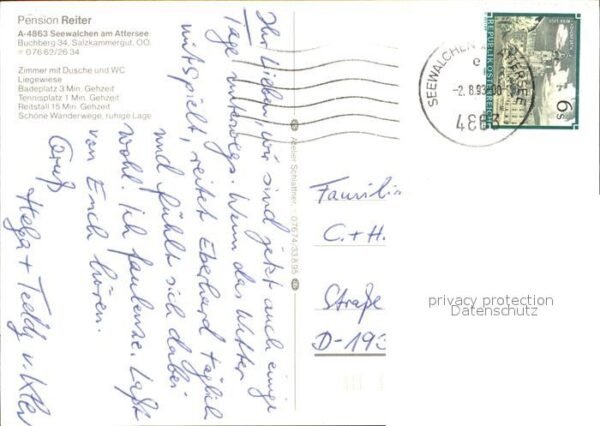 Pension Reiter
A-4863 Seewalchen am Attersee
Buchberg 34, Salzkammergut, OÖ
☏ 0 76 62/26 34
Zimmer mit Dusche und WC
Liegewiese
Badeplatz 3 Min. Gehzeit
Tennisplatz 1 Min. Gehzeit
Reitstall 15 Min. Gehzeit
Schöne Wanderwege, ruhige Lage
Ihr Lieben, wir sind jetzt auch einige
Tage unterwegs. Wenn das Wetter
mitspielt, reitet Eberhard täglich
und fühlt sich dabei
wohl. Ich faulenze. Laßt
von Euch hören.
Gruß
Helga + Teddy v.
Atelier Schlattner, 07674/33895
SEEWALCHEN ATTERSEE
e
-2.8.93
4863
REPUBLIK ÖSTERREICH
6 S
Familie
C. + H.
Straße
D-193
privacy protection
Datenschutz